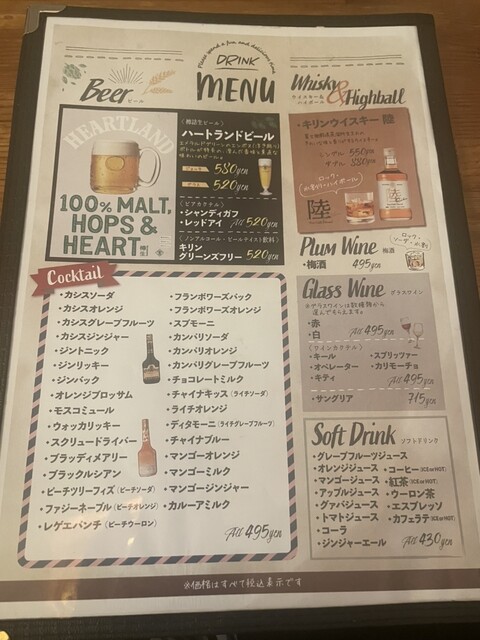 Please spend a fun and delicious time
DRINK
MENU
Beer ビール
HEARTLAND
100% MALT,
HOPS &
HEART
(樽詰生ビール)
ハートランドビール
530yen
520yen
(ビアカクテル)
・シャンディガフ
・レッドアイ All 520yen
(ノンアルコール・ビールテイスト飲料)
キリン
グリーンズフリー 520yen
Whisky
&Highball
ウイスキー&
ハイボール
・キリンウイスキー 陸
シングル 550yen
ダブル 880yen
ロック・
水割り・ハイボール
陸
Plum Wine 梅酒
・梅酒 495yen
ロック・
ソーダ・水割り
Glass Wine グラスワイン
・赤
・白 All 495yen
(ワインカクテル)
・キール ・スプリッツァー
・オペレーター ・カリモーチョ
・キティ All 495yen
・サングリア 715yen
Cocktail
・カシスソーダ
・カシスオレンジ
・カシスグレープフルーツ
・カシスジンジャー
・ジントニック
・ジンリッキー
・ジンバック
・オレンジブロッサム
・モスコミュール
・ウォッカリッキー
・スクリュードライバー
・ブラッディメアリー
・ブラックルシアン
・ピーチツリーフィズ(ピーチソーダ)
・ファジーネーブル(ピーチオレンジ)
・レゲエパンチ(ピーチウーロン)
・フランボワーズバック
・フランボワーズオレンジ
・スプモーニ
・カンパリソーダ
・カンパリオレンジ
・カンパリグレープフルーツ
・チョコレートミルク
・チャイナキッス(ライチソーダ)
・ライチオレンジ
・ディタモーニ(ライチグレープフルーツ)
・チャイナブルー
・マンゴーオレンジ
・マンゴーミルク
・マンゴージンジャー
・カルーアミルク
All 495yen
Soft Drink ソフトドリンク
・グレープフルーツジュース
・オレンジジュース ・コーヒー(ICE or HOT)
・マンゴージュース ・紅茶(ICE or HOT)
・アップルジュース ・ウーロン茶
・グァバジュース ・エスプレッソ
・トマトジュース ・カフェラテ(ICE or HOT)
・コーラ
・ジンジャーエール All 430yen
※価格はすべて税込表示です